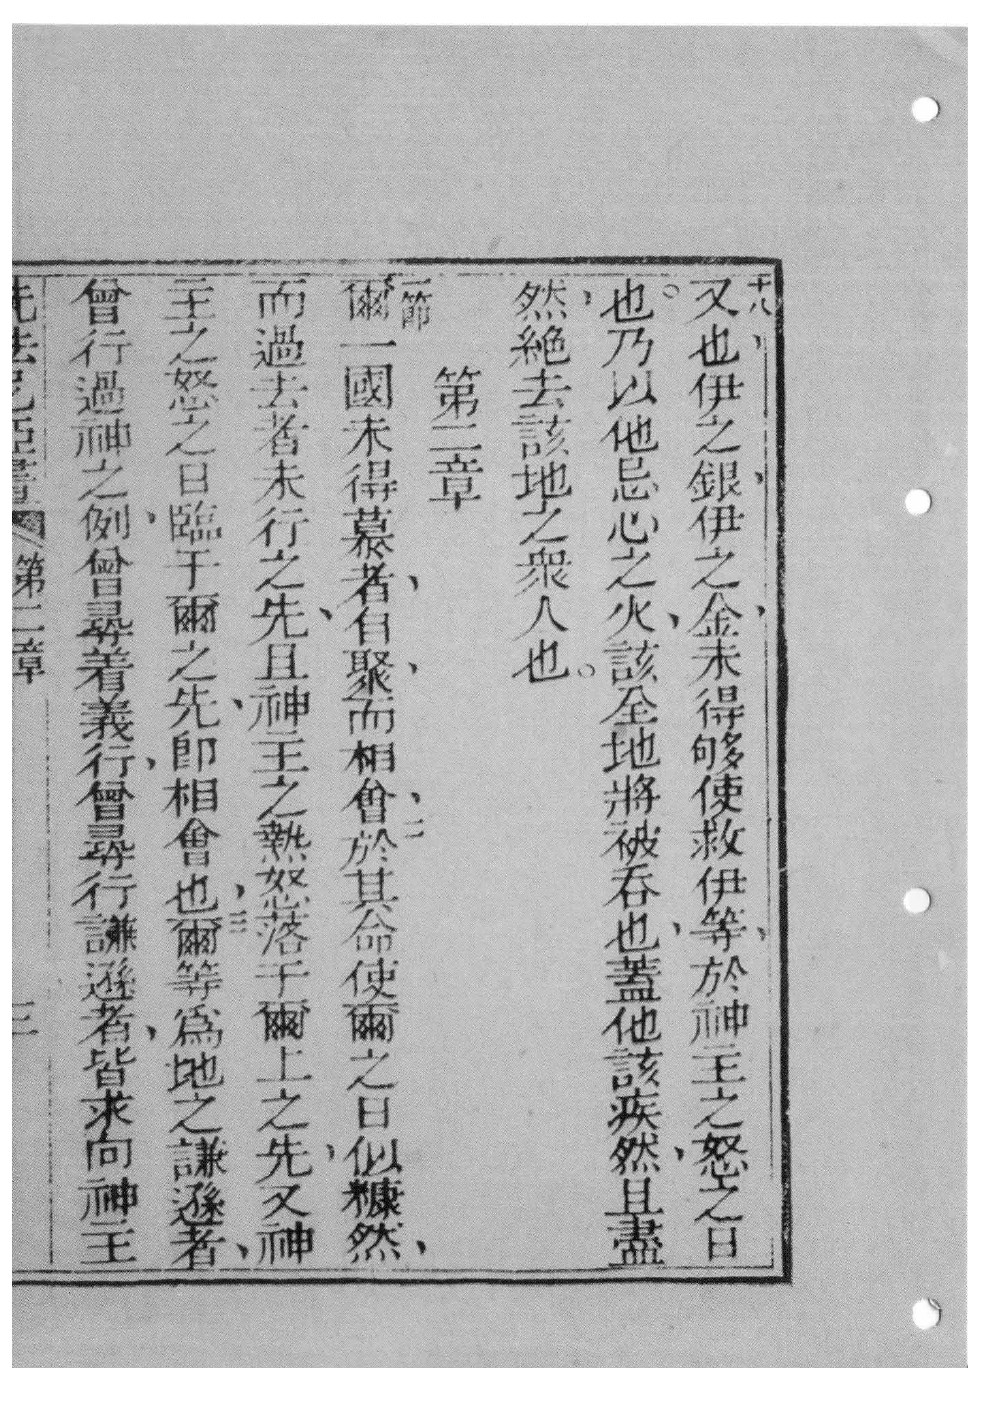 十八
又也伊之銀伊之金未得够使救伊等於神主之怒之日
也。乃以他忌心之火該全地將被吞也蓋他該疾然且盡
然絕去該地之衆人也。
第二章
一節
爾一國未得慕者自聚而相會二於其命使爾之日似糠然
而過去者未行之先且神主之熱怒落于爾上之先又神
主之怒之日臨于爾之先即相會也三爾等爲地之謙遜者
曾行過神之例曾尋着義行曾尋行謙遜者皆求向神主
第二章
三